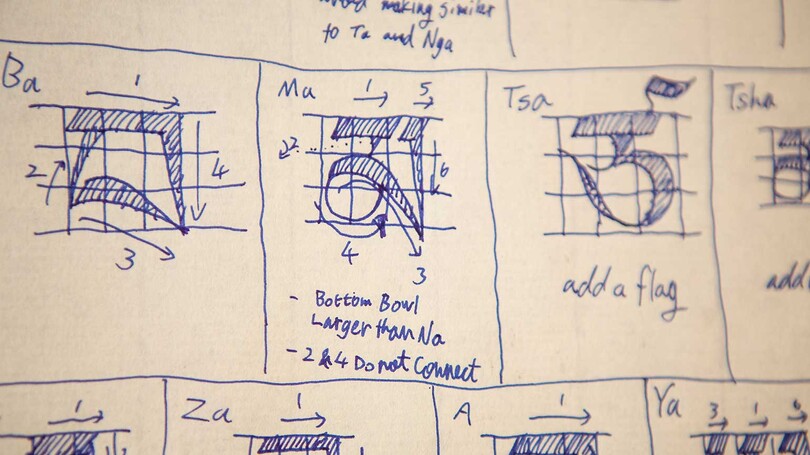 making similar
to Ta and Nga
Ba
1
2
4
3
Ma
1
5
2
6
4
3
- Bottom Bowl
Larger than Na
- 2 & 4 Do not Connect
Tsa
add a flag
Tsha
add
1
Za
1
A
1
Ya
3 1